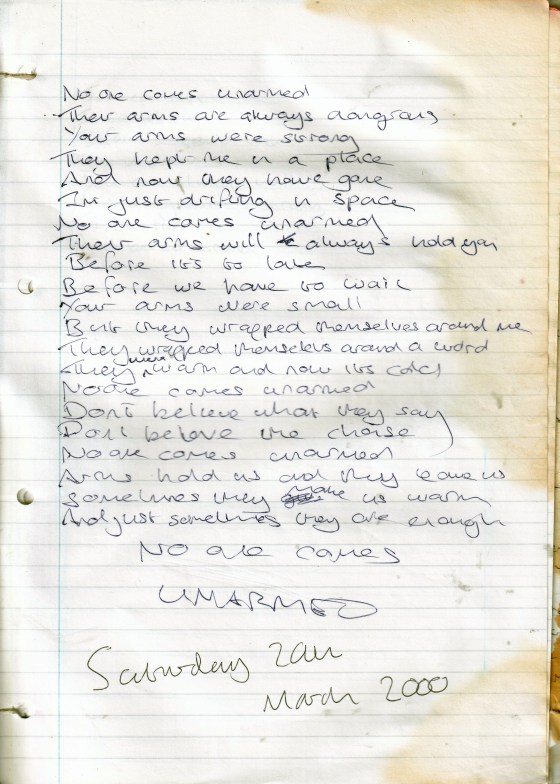 No one comes unarmed
Their arms are always dangerous
Your arms were strong
They kept me in a place
And now they have gone
I'm just drifting in space
No one comes unarmed
Their arms will always hold you
Before it's to late
Before we have to wait
Your arms were small
But they wrapped themselves around me
They wrapped themselves around a word
They were warm and now its cold
No one comes unarmed
Don't believe what they say
Don't believe the
No one comes unarmed
Arms hold us and they leave us
Sometimes they make us warm
And just sometimes they are enough
No one comes
UNARMED
Saturday 2am
March 2000